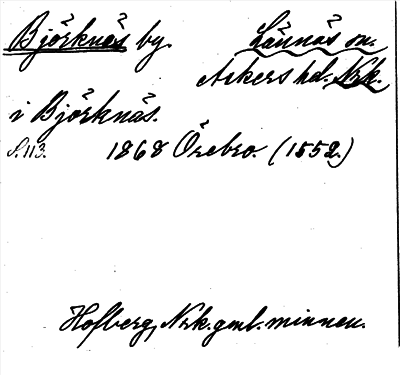 Björknäs by. Lännäs sn.
Askers hd. Nrk.
i Björknäs.
S. 113. 1868 Örebro. (1552.)
Hofberg, Nrk. gml. minnen.